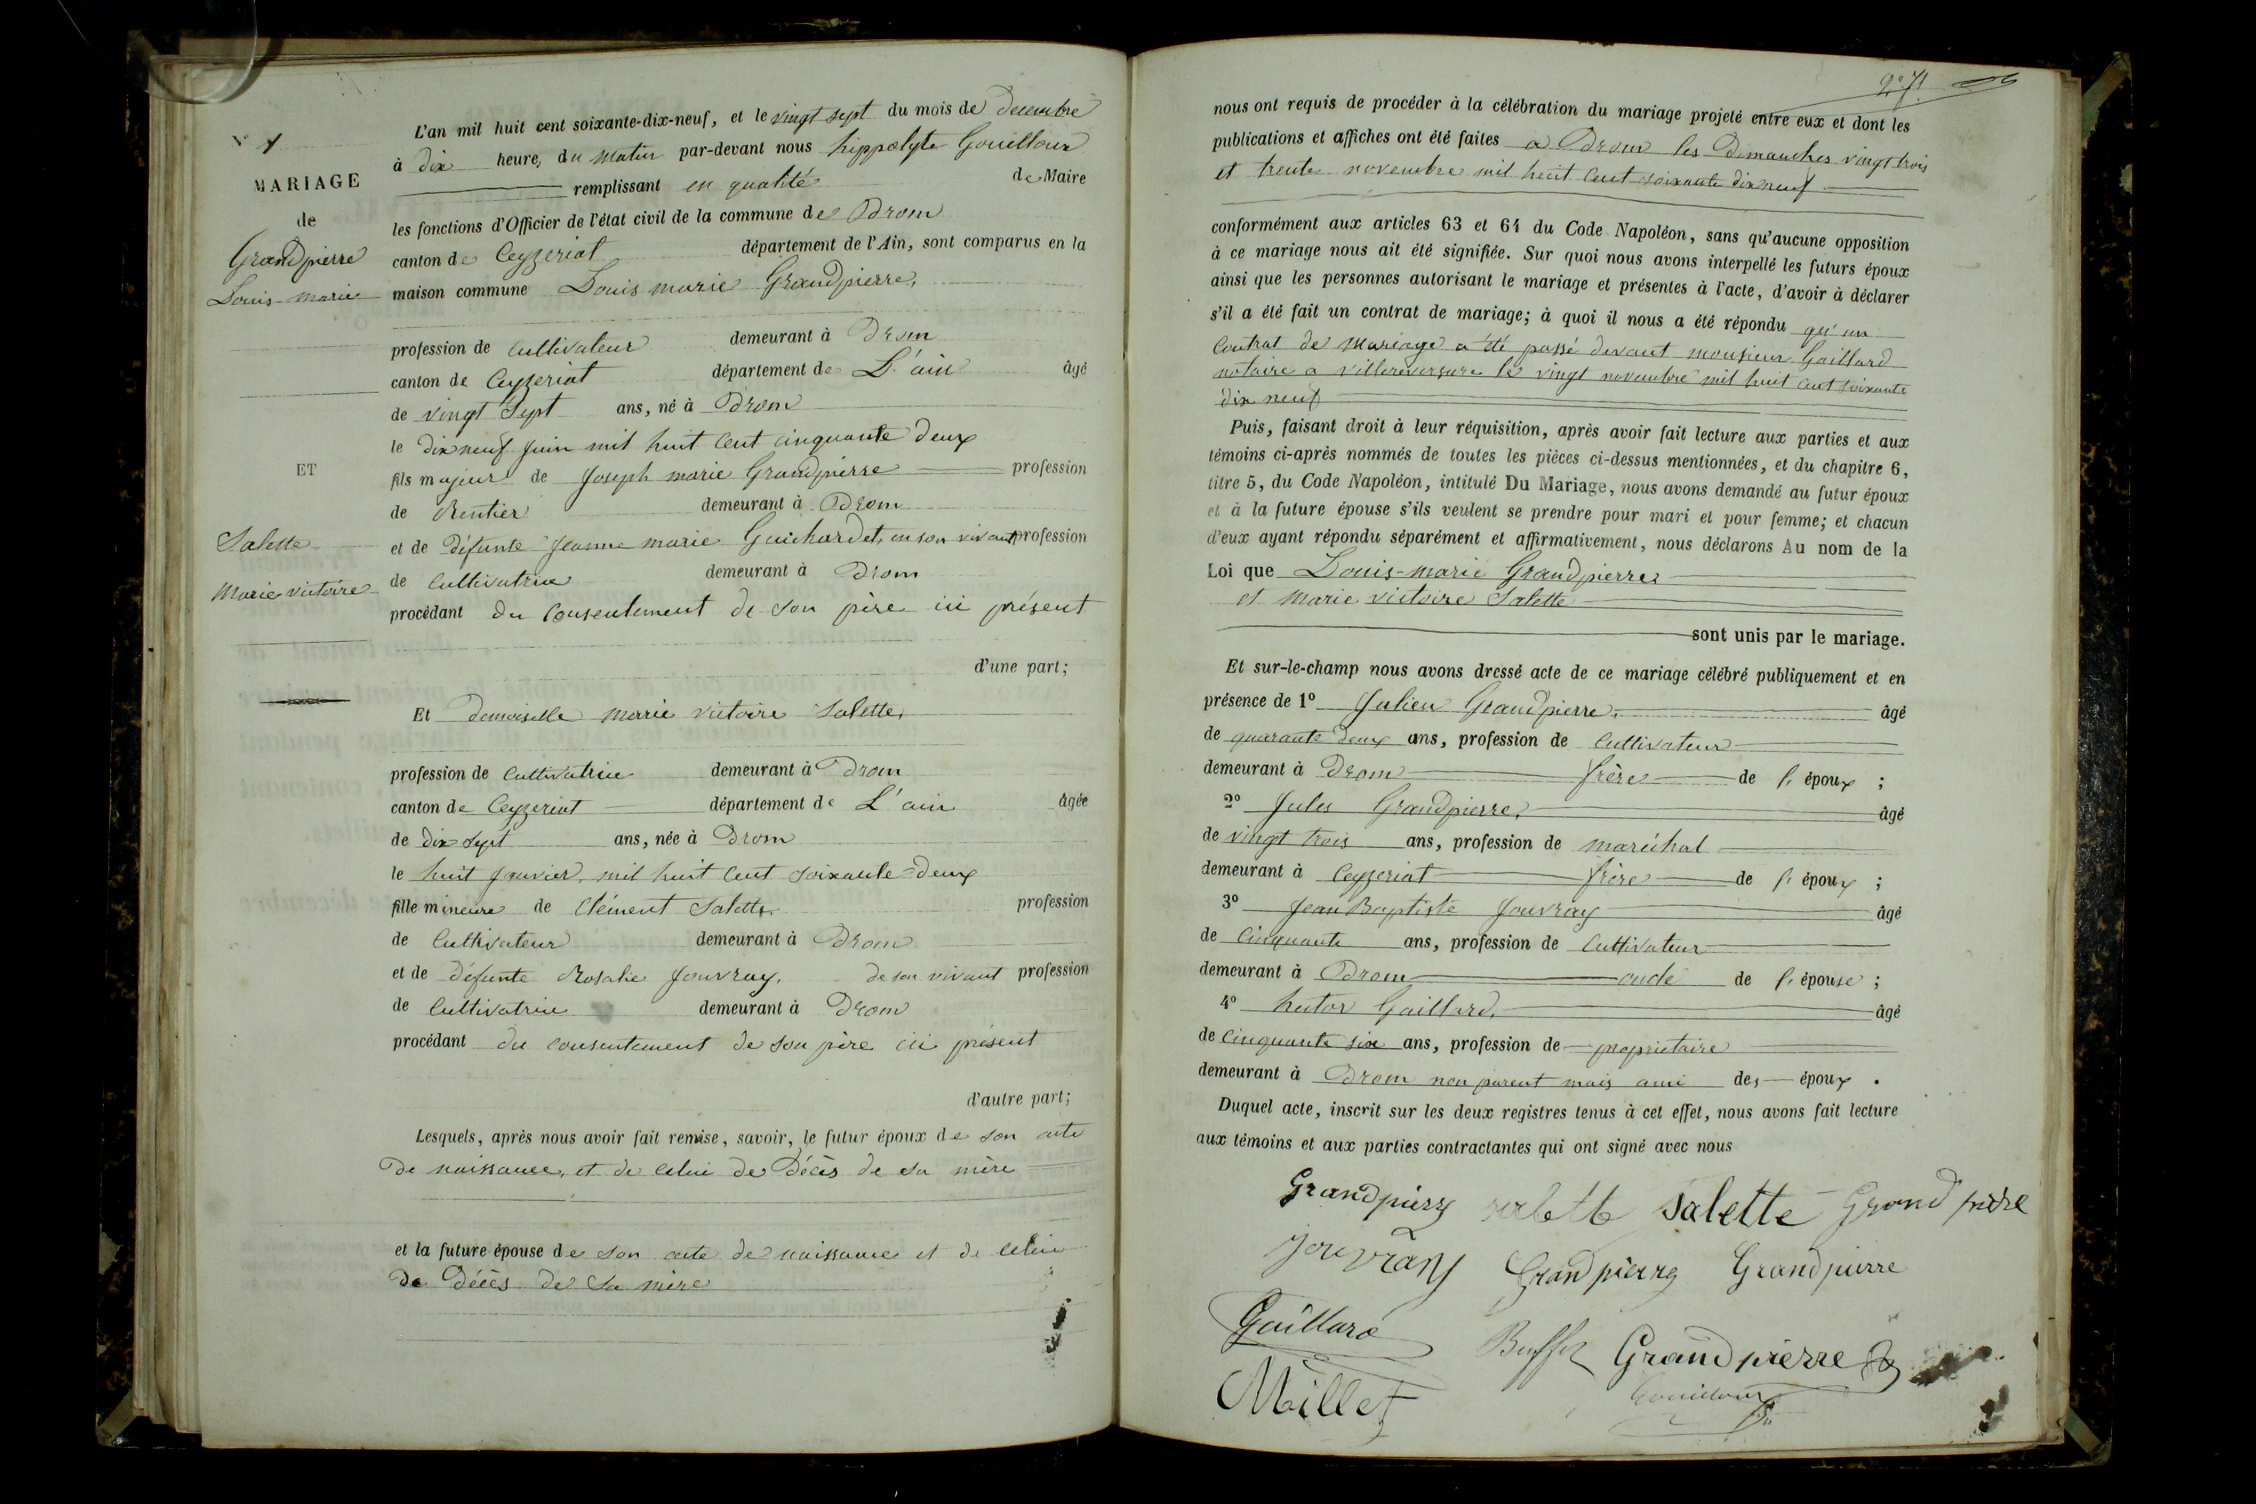 N° 1
MARIAGE
de
Grandpierre
Louis-marie
ET
Salette
Marie victoire
L'an mil huit cent soixante-dix-neuf, et le vingt sept du mois de decembre
à dix heure, du matin par-devant nous hippolyte Gouilloux
remplissant en qualité de Maire
les fonctions d'Officier de l'état civil de la commune de Drom
canton de Ceyzeriat département de l'Ain, sont comparus en la
maison commune Louis marie Grandpierre,
profession de cultivateur demeurant à Drom
canton de Ceyzeriat département de L'ain âgé
de vingt Sept ans, né à Drom
le dix neuf Juin mil huit cent cinquante deux
fils majeur de Joseph marie Grandpierre profession
de Rentier demeurant à Drom
et de défunte Jeanne marie Guichardet, en son vivant profession
de cultivatrice demeurant à Drom
procèdant du consentement de son père ici présent
d'une part;
Et demoiselle marie victoire Salette,
profession de cultivatrice demeurant à Drom
canton de Ceyzeriat département de L'ain âgée
de dix sept ans, née à Drom
le huit Janvier, mil huit cent soixante-deux
fille mineure de Clément Salette, profession
de cultivateur demeurant à Drom
et de défunte Rosalie Jouvray, de son vivant profession
de cultivatrice demeurant à Drom
procédant du consentement de son père ici présent
d'autre part;
Lesquels, après nous avoir fait remise, savoir, le futur époux de son acte
de naissance, et de celui de Décès de sa mère
et la future épouse de son acte de naissance et de celui
de Décès de sa mère
nous ont requis de procéder à la célébration du mariage projeté entre eux et dont les
publications et affiches ont été faites a Drom les Dimanches vingt trois
et trente novembre mil huit cent soixante dix neuf
conformément aux articles 63 et 64 du Code Napoléon, sans qu'aucune opposition
à ce mariage nous ait été signifiée. Sur quoi nous avons interpellé les futurs époux
ainsi que les personnes autorisant le mariage et présentes à l'acte, d'avoir à déclarer
s'il a été fait un contrat de mariage; à quoi il nous a été répondu qu'un
contrat de mariage a été passé devant monsieur Gaillard
notaire a villereversure le vingt novembre mil huit cent soixante
dix neuf
Puis, faisant droit à leur réquisition, après avoir fait lecture aux parties et aux
témoins ci-après nommés de toutes les pièces ci-dessus mentionnées, et du chapitre 6,
titre 5, du Code Napoléon, intitulé Du Mariage, nous avons demandé au futur époux
et à la future épouse s'ils veulent se prendre pour mari et pour femme; et chacun
d'eux ayant répondu séparément et affirmativement, nous déclarons Au nom de la
Loi que Louis-marie Grandpierre,
et marie victoire Salette
sont unis par le mariage.
Et sur-le-champ nous avons dressé acte de ce mariage célébré publiquement et en
présence de 1° Julien Grandpierre, âgé
de quarante deux ans, profession de cultivateur
demeurant à Drom frère de l'époux ;
2° Jules Grandpierre, âgé
de vingt trois ans, profession de maréchal
demeurant à Ceyzeriat frère de l'époux ;
3° Jean Baptiste Jouvray âgé
de cinquante ans, profession de cultivateur
demeurant à Drom oncle de l'épouse ;
4° hector Gaillard, âgé
de cinquante six ans, profession de propriétaire
demeurant à Drom non parent mais ami des époux .
Duquel acte, inscrit sur les deux registres tenus à cet effet, nous avons fait lecture
aux témoins et aux parties contractantes qui ont signé avec nous
Grandpierre salette Salette Grandpierre
Jouvray Grandpierre Grandpierre
Gaillard Buffet Grandpierre
Millet Gouilloux